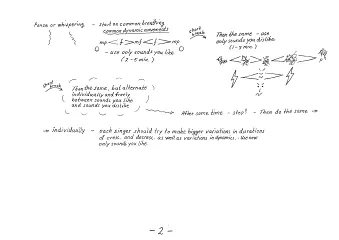 Pause or whispering. - start on common breathing
common dynamic
mp < f > mf < f > mp
- use only sounds you like
(2-5 min.)
short break
Then the same - use
only sounds you dislike
(1-3 min.)
short break
Then the same, but alternate
individually and freely
between sounds you like
and sounds you dislike
After some time - stop! - Then do the same →
→ Individually - each singer should try to make bigger variations in durations
of cresc. and decresc. as well as variations in dynamics. Use now
only sounds you like.
- 2 -